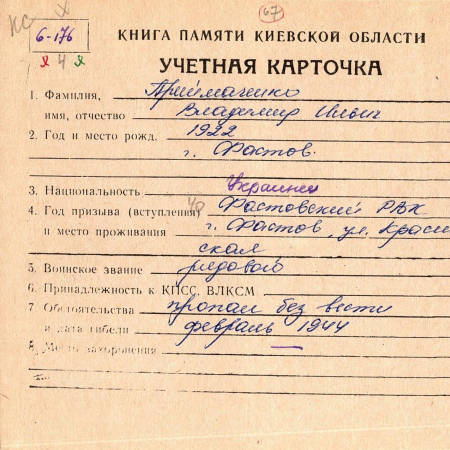 КС
67
6-176
я 4 я
КНИГА ПАМЯТИ КИЕВСКОЙ ОБЛАСТИ
УЧЕТНАЯ КАРТОЧКА
1. Фамилия, Приймаченко
имя, отчество Владимир Ильич
2. Год и место рожд. 1922
г. Фастов.
3. Национальность Украинец
4. Год призыва (вступления) Фастовский РВК
и место проживания г. Фастов, ул. Красин
ская
5. Воинское звание рядовой
6. Принадлежность к КПСС, ВЛКСМ
7. Обстоятельства пропал без вести
и дата гибели февраль 1944
8. Место захоронения —